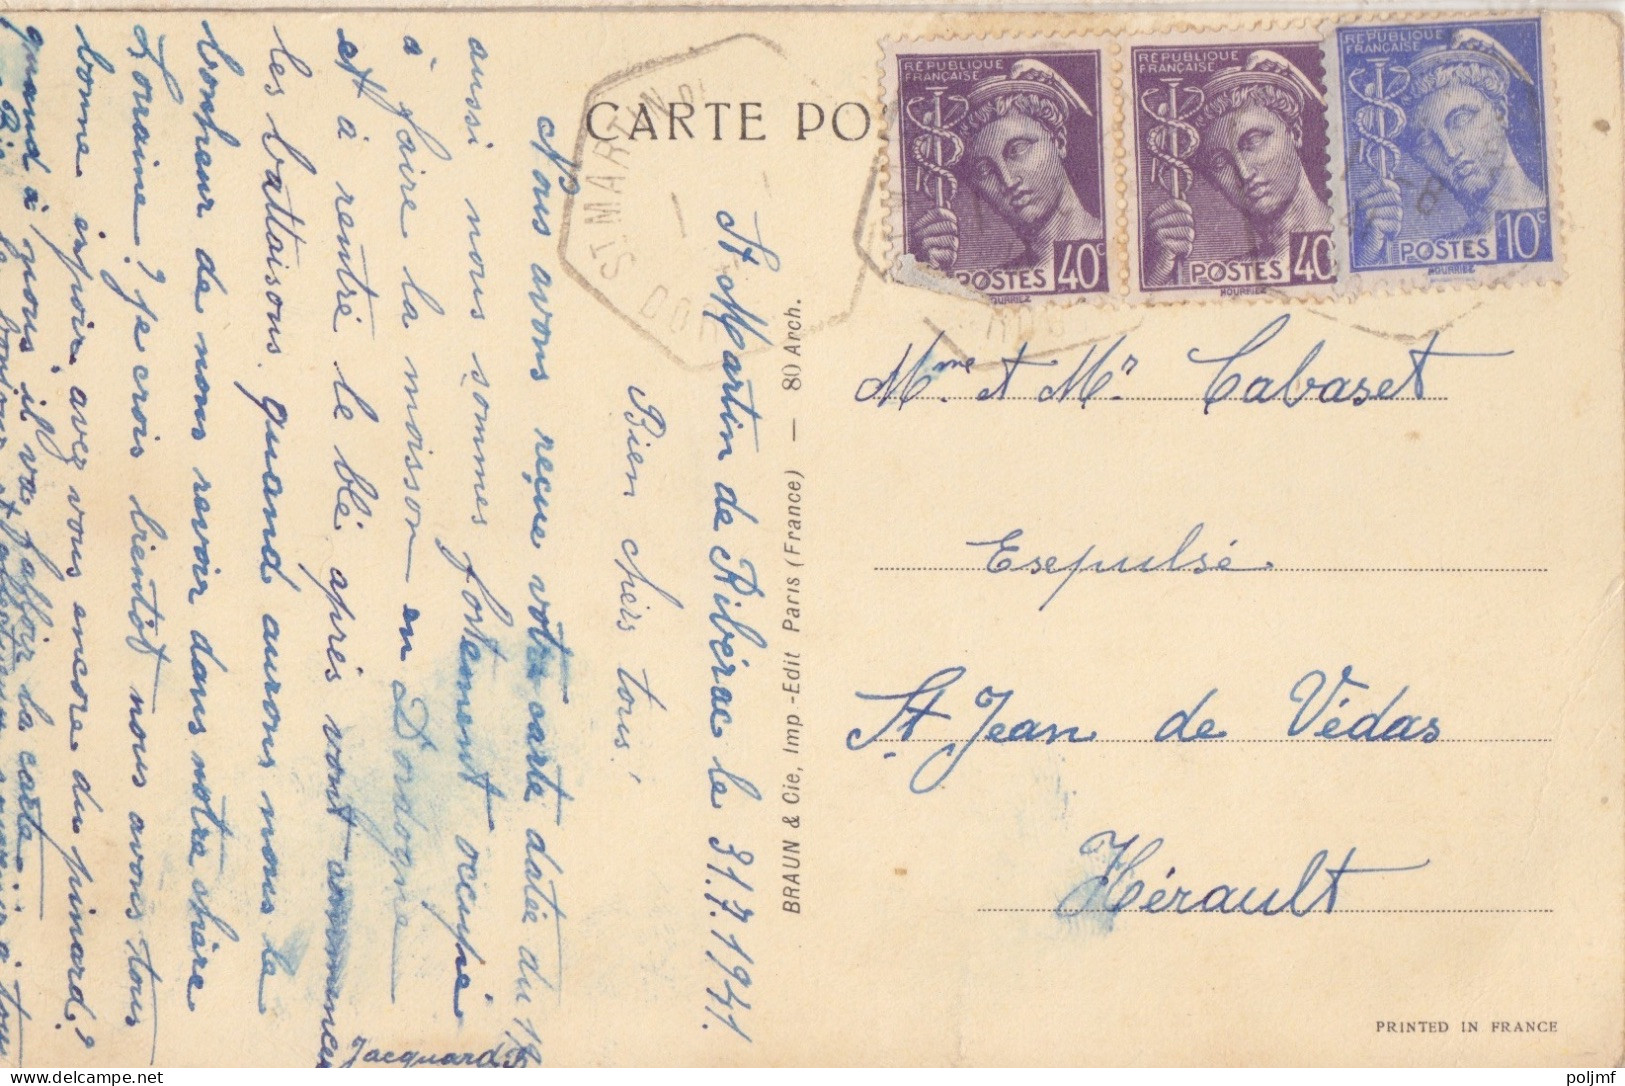 CARTE PO
ST MARTIN
DOR
RÉPUBLIQUE
FRANÇAISE
POSTES
40c
HOURRIEZ
RÉPUBLIQUE
FRANÇAISE
POSTES
40
HOURRIEZ
RÉPUBLIQUE
FRANÇAISE
POSTES
10c
HOURRIEZ
St Martin de Ribérac le 31.7.1941.
Bien chers tous!
Nous avons reçue votre carte datée du 19
aussi nous sommes fortement occupé
à faire la moisson en Dordogne
et à rentré le blé après vont commencer
les battaisons. quand aurons nous le
bonheur de nous revoir dans notre chère
Loraine? je crois bientôt nous avons tous
bonne espoir, avez vous encore du pinard?
quand à nous il va falloir la carte.
le bonjour et
Jacquard
BRAUN & Cie, Imp-Edit Paris (France) — 80 Arch.
Mme et Mr Cabaset
Esepulsé
St Jean de Védas
Hérault
PRINTED IN FRANCE
poljmf